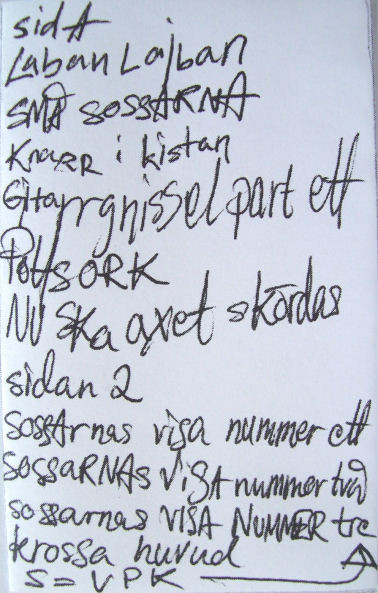 sid A
Laban Lajban
SMÅ SOSSARNA
Knarr i kistan
Gitarrgnissel part ett
Pottsork
NU SKa axet skördas
sidan 2
Sossarnas visa nummer ett
SOSSARNAS ViSA nummer två
sossarnas VISA NUMMER tre
krossa huvud
S = V P K